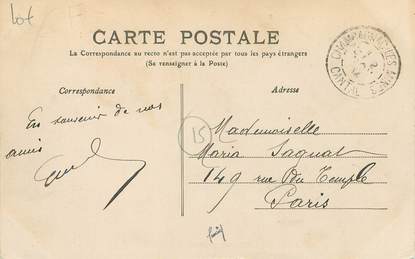 Lot
CARTE POSTALE
La Correspondance au recto n'est pas acceptée par tous les pays étrangers
(Se renseigner à la Poste)
Correspondance
Adresse
En souvenir de nos
amis
15
Mademoiselle
Maria
149 rue Du Temple
Paris
CANTAL